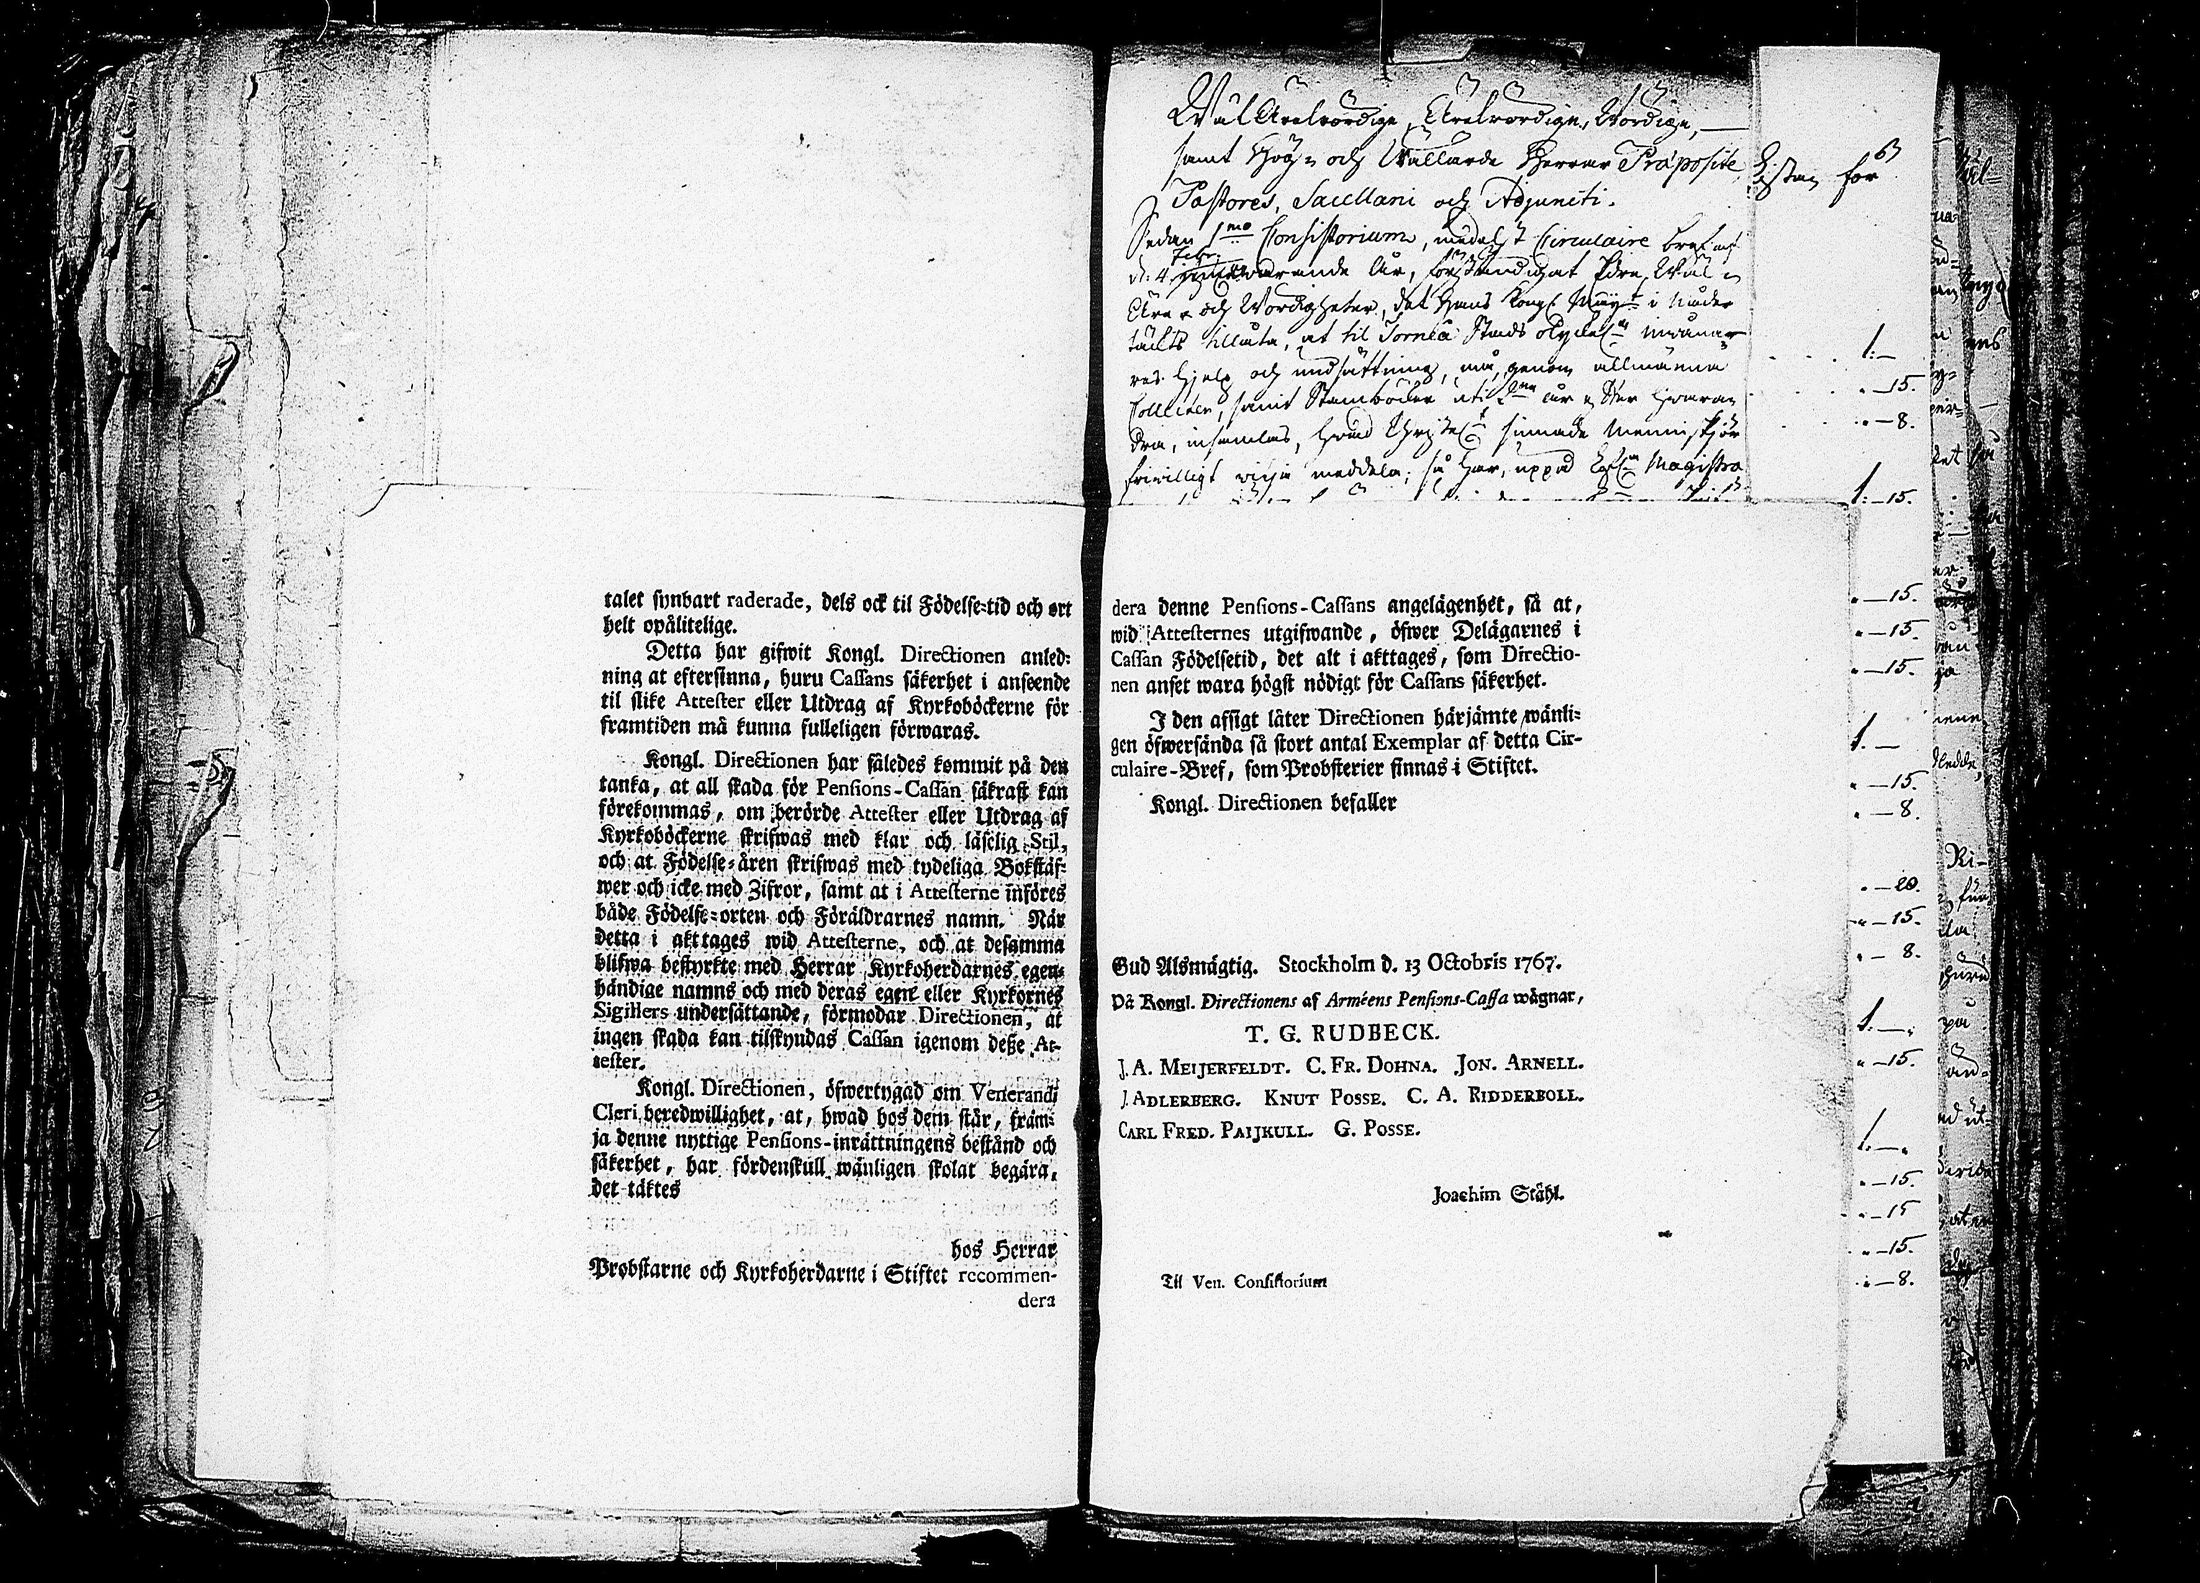 talet synbart raderade, dels ock til Födelse-tid och ort
helt opålitelige.
Detta har gifwit Kongl. Directionen anled-
ning at eftersinna, huru Cassans säkerhet i anseende
til slike Attester eller Utdrag af Kyrkoböckerne för
framtiden må kunna fulleligen förwaras.
Kongl. Directionen har således kommit på den
tanka, at all skada för Pensions-Cassan säkrast kan
förekommas, om berörde Attester eller Utdrag af
Kyrkoböckerne skrifwas med klar och läselig Stil,
och at Födelse-åren skrifwas med tydeliga Bokstäf-
wer och icke med Zifror, samt at i Attesterne införes
både Födelse-orten och Föräldrarnes namn. När
detta i akttages wid Attesterne, och at desamma
blifwa bestyrkte med Herrar Kyrkoherdarnes egen-
händige namns och med deras egen eller Kyrkornes
Sigillers undersättande, förmodar Directionen, at
ingen skada kan tilskyndas Cassan igenom deße At-
tester.
Kongl. Directionen, öfwertygad om Venerandi
Cleri beredwillighet, at, hwad hos dem står, främ-
ja denne nyttige Pensions-inrättningens bestånd och
säkerhet, har fördenskull wänligen skolat begära,
det täktes
hos Herrar
Probstarne och Kyrkoherdarne i Stiftet recommen-
dera
WälÄrewördige, Ärewördige, Wördige,
samt Hög- och Wällärde Herrar Præposite
Pastores, Sacellani och Adjuncti.
Sedan Consistorium, medelst Circulaire bref af
d: 4 Febr. innewarande År, Wäl-
Äre- och Wördigheter, det Hans Kongl. Maÿt i Nåder
täckts tillåta, at til Torneå Stads invåna-
res hjelp och undsättning, må, genom allmänna
Collecter, samt Stamböcker uti år efter hwaran-
dra, insamlas, hwad sinnade Menniskjor
friwilligt wilja meddela; så har, uppå Magistra
Listan för
1:—
—15.
—8.
1:—15.
—15.
—15.
—15.
1.—
—15.
—8.
—20.
—15.
—8.
1.—
—15.
1.—
—15.
—15
—15.
—8.
dera denne Pensions-Cassans angelägenhet, så at,
wid Attesternes utgifwande, öfwer Delägarnes i
Cassan Födelsetid, det alt i akttages, som Directio-
nen anset wara högst nödigt för Cassans säkerhet.
I den afsigt låter Directionen härjämte wänli-
gen öfwersända så stort antal Exemplar af detta Cir-
culaire-Bref, som Probsterier finnas i Stiftet.
Kongl. Directionen befaller
Gud Alsmägtig. Stockholm d. 13 Octobris 1767.
På Kongl. Directionens af Arméens Pensions-Cassa wägnar,
T. G. RUDBECK.
J. A. MEIJERFELDT. C. FR. DOHNA. JON. ARNELL.
J. ADLERBERG. KNUT POSSE. C. A. RIDDERBOLL.
CARL FRED. PAIJKULL. G. POSSE.
Joachim Ståhl.
Til Ven. Consistorium